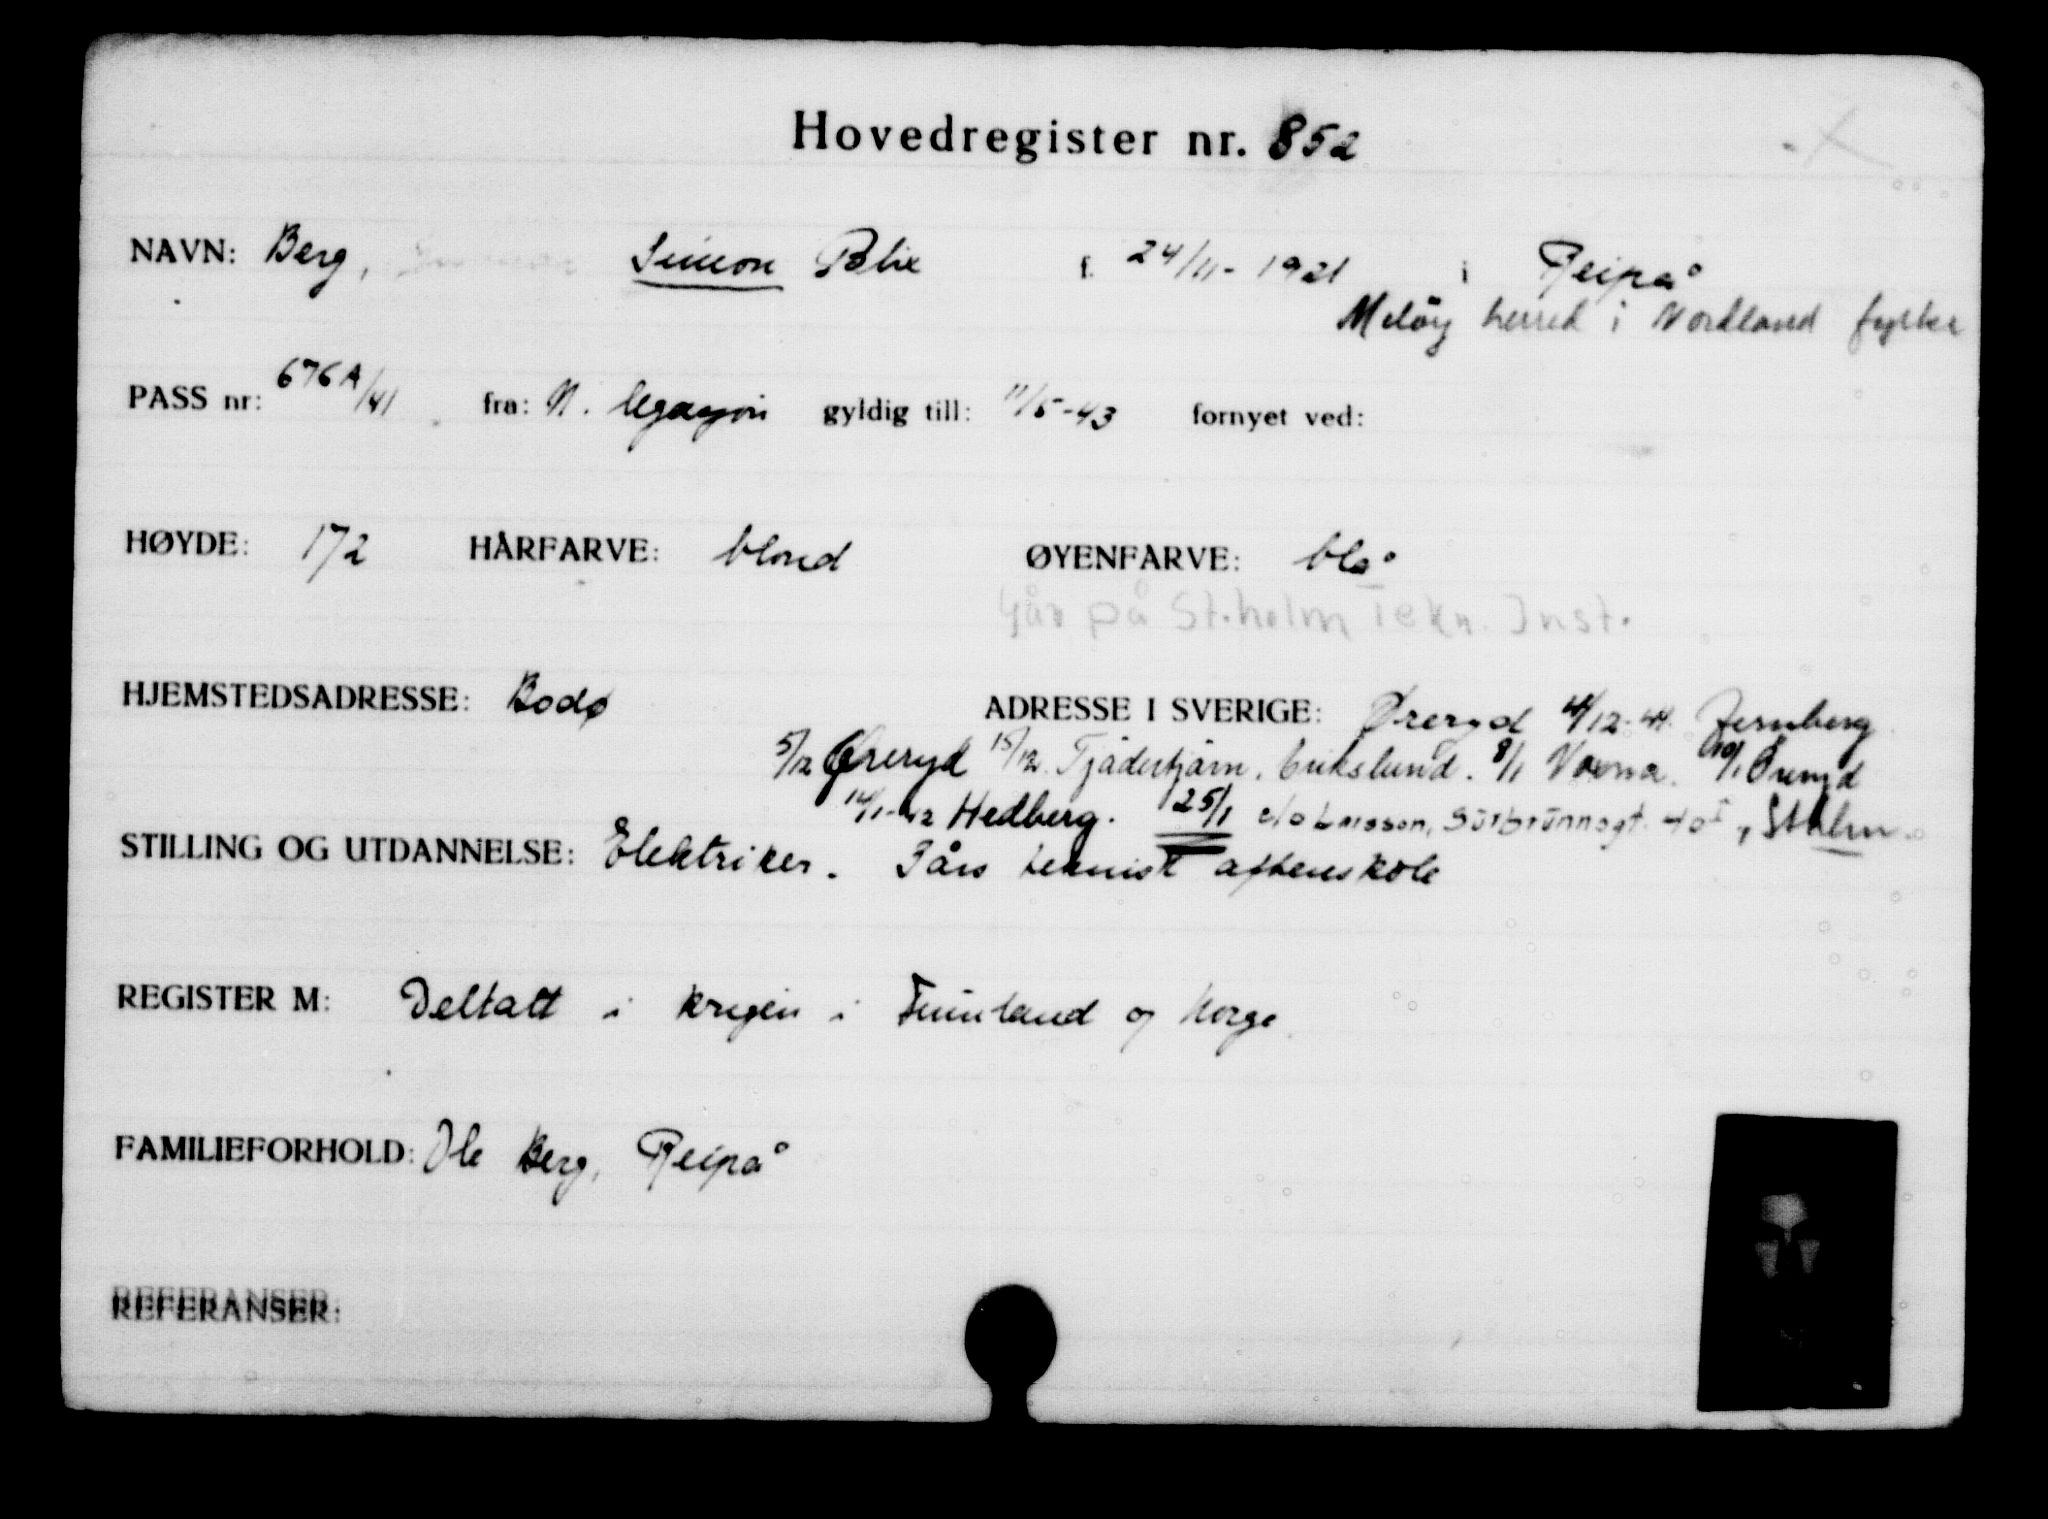 Hovedregister nr. 852
NAVN: Berg, Simon Blix f. 24/11-1921 i Reipå
Meløy herred i Nordland fylke
PASS nr: 676A/41 fra: N. legasjon gyldig till: 11/5-43 fornyet ved:
HØYDE: 172 HÅRFARVE: blond ØYENFARVE: blå
Går på St.holm Tekn. Inst.
HJEMSTEDSADRESSE: Bodø ADRESSE I SVERIGE: Øreryd 4/12-41. Jernberg
5/12 Øreryd 15/12. Tjäderstjärn, Erikslund. 8/1 Voxna. 10/1 Öreryd
14/1-42 Hedberg. 25/1 c/o Larsson, Surbrunnsgt. 40 I, Sthlm.
STILLING OG UTDANNELSE: Elektriker. 3 års teknisk aftenskole
REGISTER M: Deltatt i krigen i Finnland og Norge.
FAMILIEFORHOLD: Ole Berg, Reipå
REFERANSER: